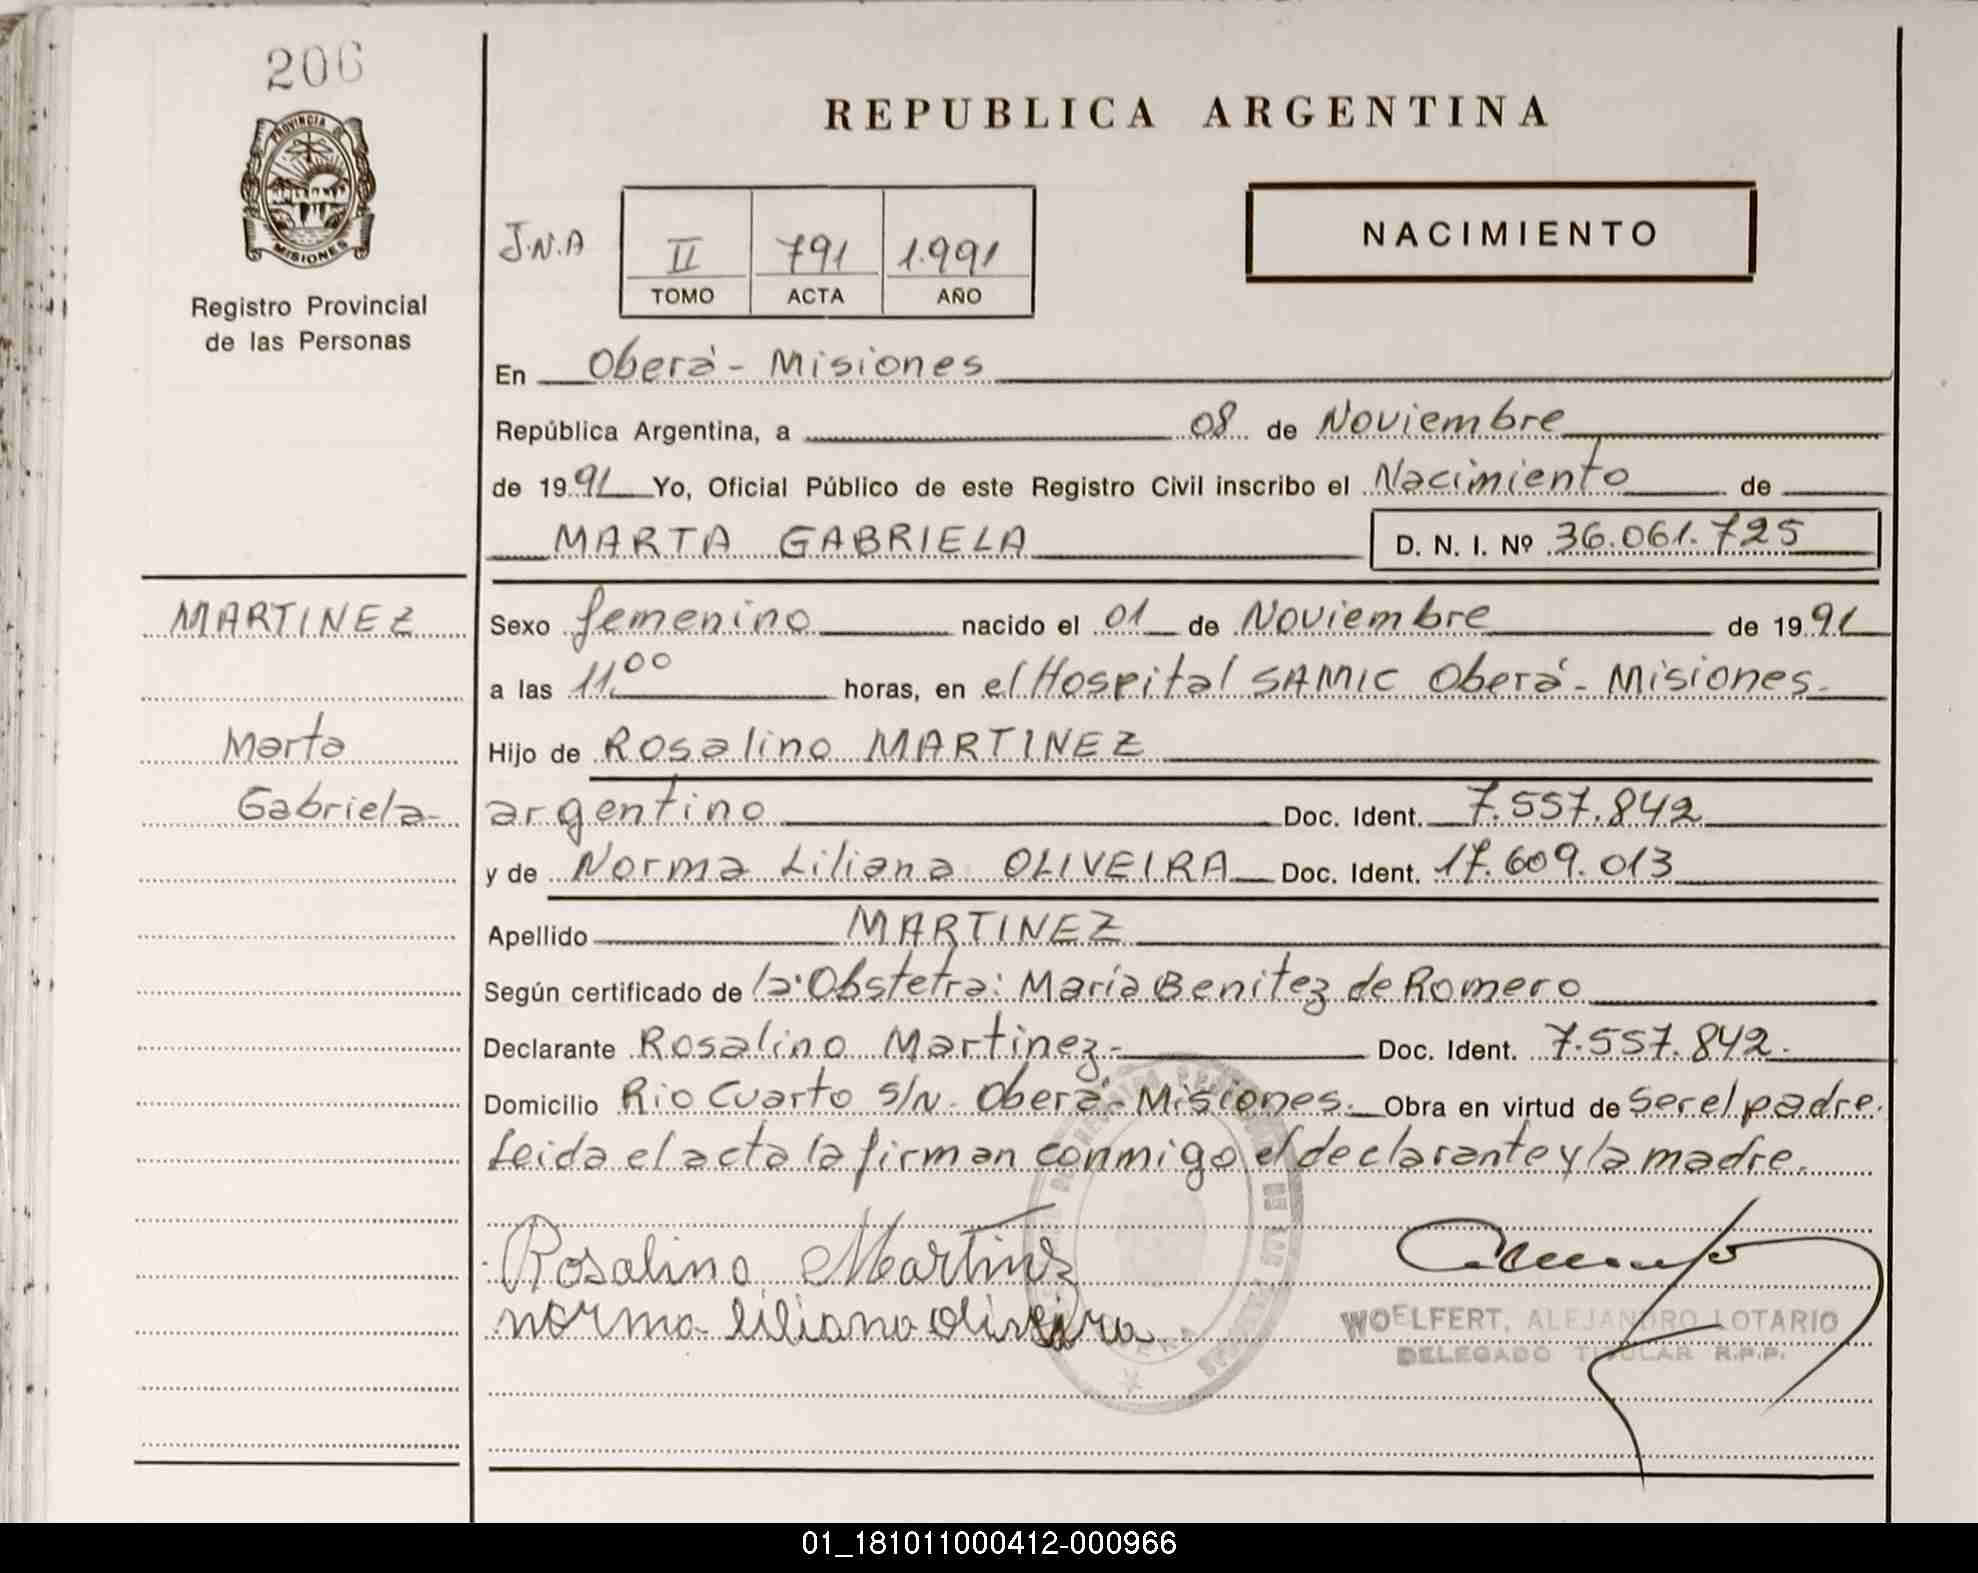 206
PROVINCIA DE
MISIONES
Registro Provincial
de las Personas
MARTINEZ
Marta
Gabriela-
REPUBLICA ARGENTINA
NACIMIENTO
J.N.A
II 791 1.991
TOMO ACTA AÑO
En Oberá - Misiones
República Argentina, a 08 de Noviembre
de 1991 Yo, Oficial Público de este Registro Civil inscribo el Nacimiento de
MARTA GABRIELA D. N. I. Nº 36.061.725
Sexo femenino nacido el 01 de Noviembre de 1991
a las 11.00 horas, en el Hospital SAMIC Oberá - Misiones-
Hijo de Rosalino MARTINEZ
argentino Doc. Ident. 7.557.842
y de Norma Liliana OLIVEIRA Doc. Ident. 17.609.013
Apellido MARTINEZ
Según certificado de la Obstetra: María Benitez de Romero
Declarante Rosalino Martinez- Doc. Ident. 7.557.842-
Domicilio Rio Cuarto s/N. Oberá - Misiones. Obra en virtud de ser el padre.
Leida el acta la firman conmigo el declarante y la madre.
Rosalino Martinez
norma liliana oliveira
WOELFERT, ALEJANDRO LOTARIO
DELEGADO TITULAR R.P.P.
01_181011000412-000966